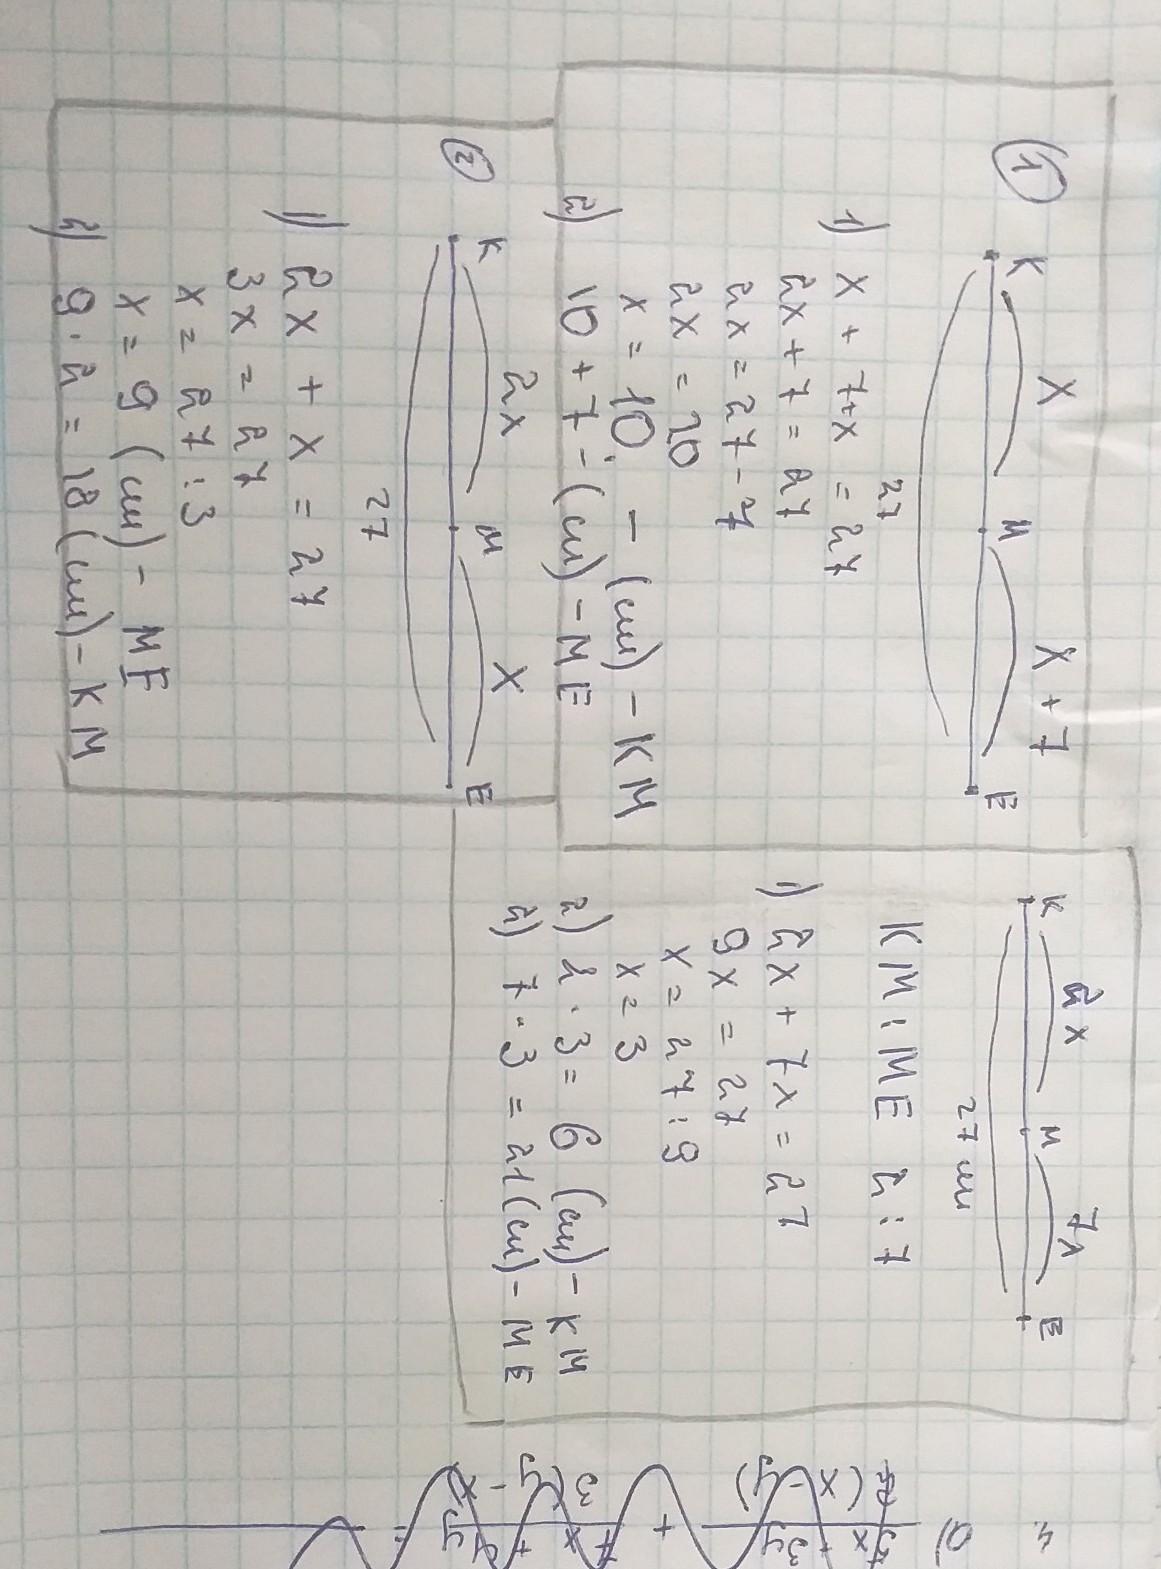 1
K X M X + 7 E
27
1) x + 7+x = 27
2x + 7 = 27
2x = 27 - 7
2x = 20
x = 10 - (см) - KM
2) 10 + 7 - (см) - ME
2
K 2x M X E
27
1) 2x + x = 27
3x = 27
x = 27 : 3
x = 9 (см) - ME
2) 9 · 2 = 18 (см) - KM
K 2x M 7x E
27 см
KM : ME 2 : 7
1) 2x + 7x = 27
9x = 27
x = 27 : 9
x = 3
2) 2 · 3 = 6 (см) - KM
2) 7 · 3 = 21 (см) - ME
4. a)